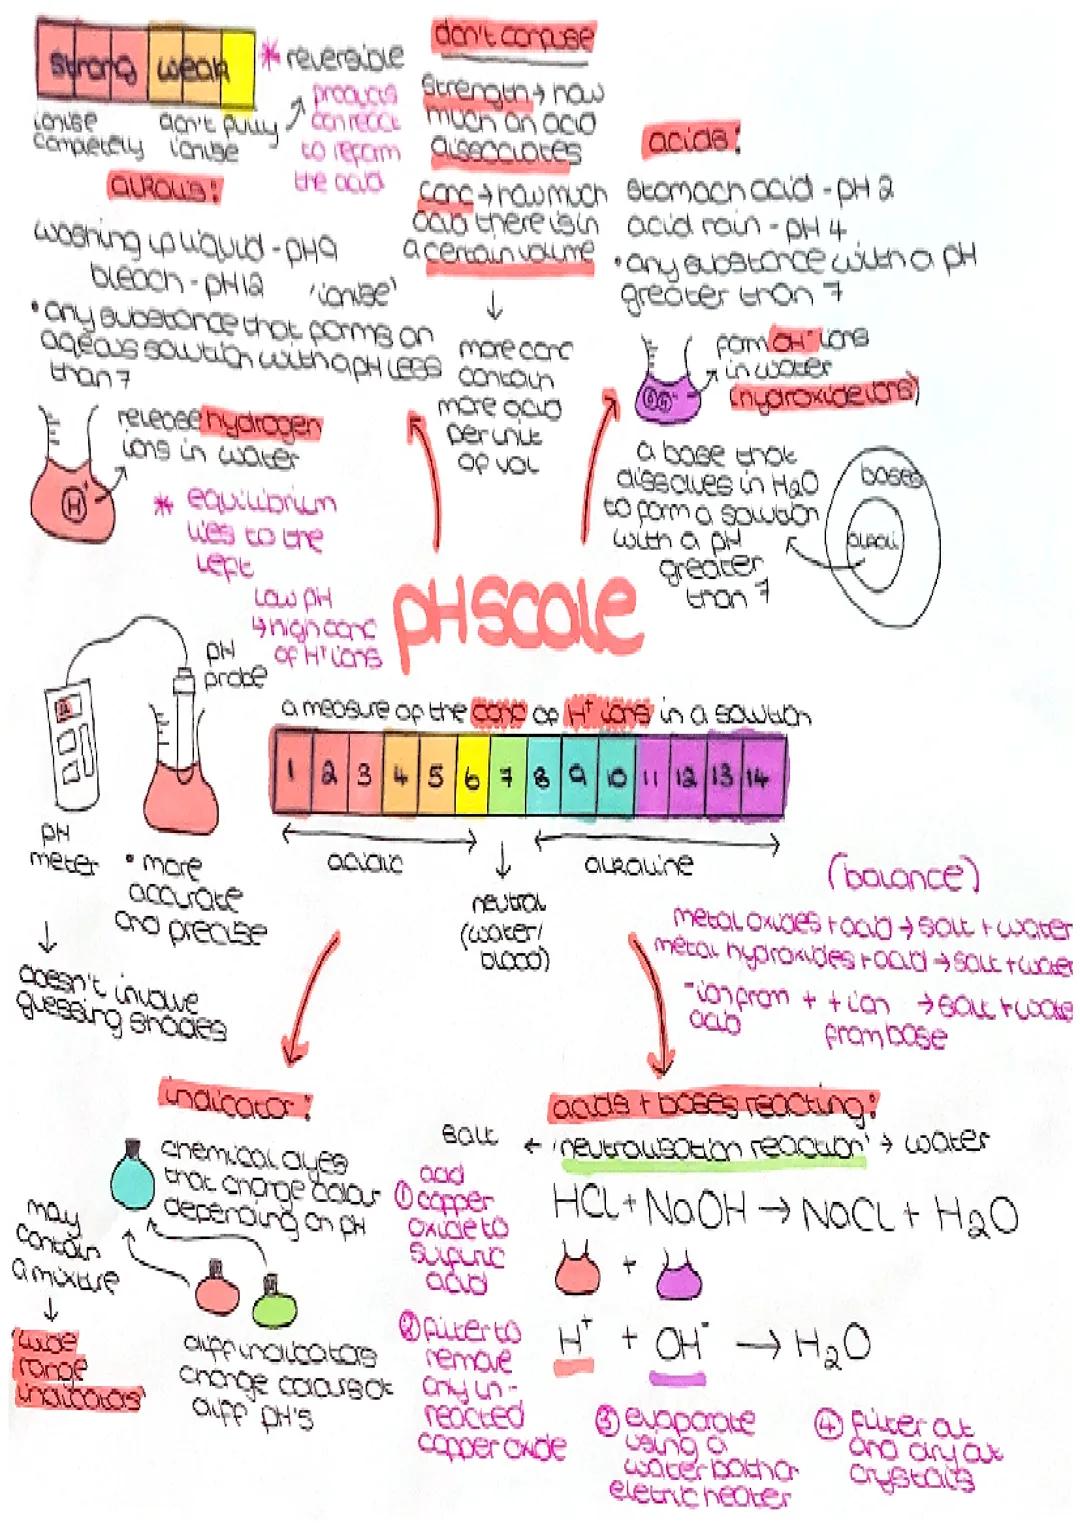 strong weak
ionise
completely
don't fully
ionise
* reversible
products
can react
to reform
the acid
don't confuse
strength → how
much an acid
dissociates
conc → how much
acid there is in
a certain volume
↓
more conc
contain
more acid
per unit
of vol
alkalis!
washing up liquid - pH9
bleach - pH12
'ionise'
• any substance that forms an
aqeous solution with a pH less
than 7
release hydrogen
ions in water
H+
* equilibrium
lies to the
left
low pH
↳ high conc
of H+ ions
acids!
stomach acid - pH 2
acid rain - pH 4
• any substance with a pH
greater than 7
form OH- ions
in water
(hydroxide ions)
OH-
a base that
dissolves in H2O
to form a solution
with a pH
greater
than 7
bases
alkali
pH scale
a measure of the conc of H+ ions in a solution
1 2 3 4 5 6 7 8 9 10 11 12 13 14
acidic
neutral
(water/
blood)
alkaline
pH
probe
pH
meter
• more
accurate
and precise
↓
doesn't involve
guessing shades
(balance)
metal oxides + acid → salt + water
metal hydroxides + acid → salt + water
- ion from + + ion → salt + wate
acid
from base
indicator!
chemical dyes
that change colour
depending on pH
may
contain
a mixture
↓
'wide
range
indicators'
diff indicators
change colours at
diff pH's
acids + bases reacting!
salt ← 'neutralisation reaction' → water
HCl + NaOH → NaCl + H2O
+
H+ + OH- → H2O
add
① copper
oxide to
sulfuric
acid
② filter to
remove
any un-
reacted
copper oxide
③ evaporate
using a
water bath or
eletric heater
④ filter out
and dry out
crystals